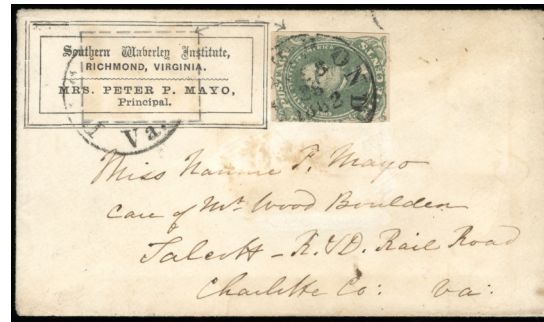 Southern Waverley Institute,
RICHMOND, VIRGINIA.
MRS. PETER P. MAYO,
Principal.
Va.
POSTAGE
OND
1862
Miss Nannie P. Mayo
Care of Mr Wood Bouldin
Talcott - R. & D. Rail Road
Charlotte Co: Va: